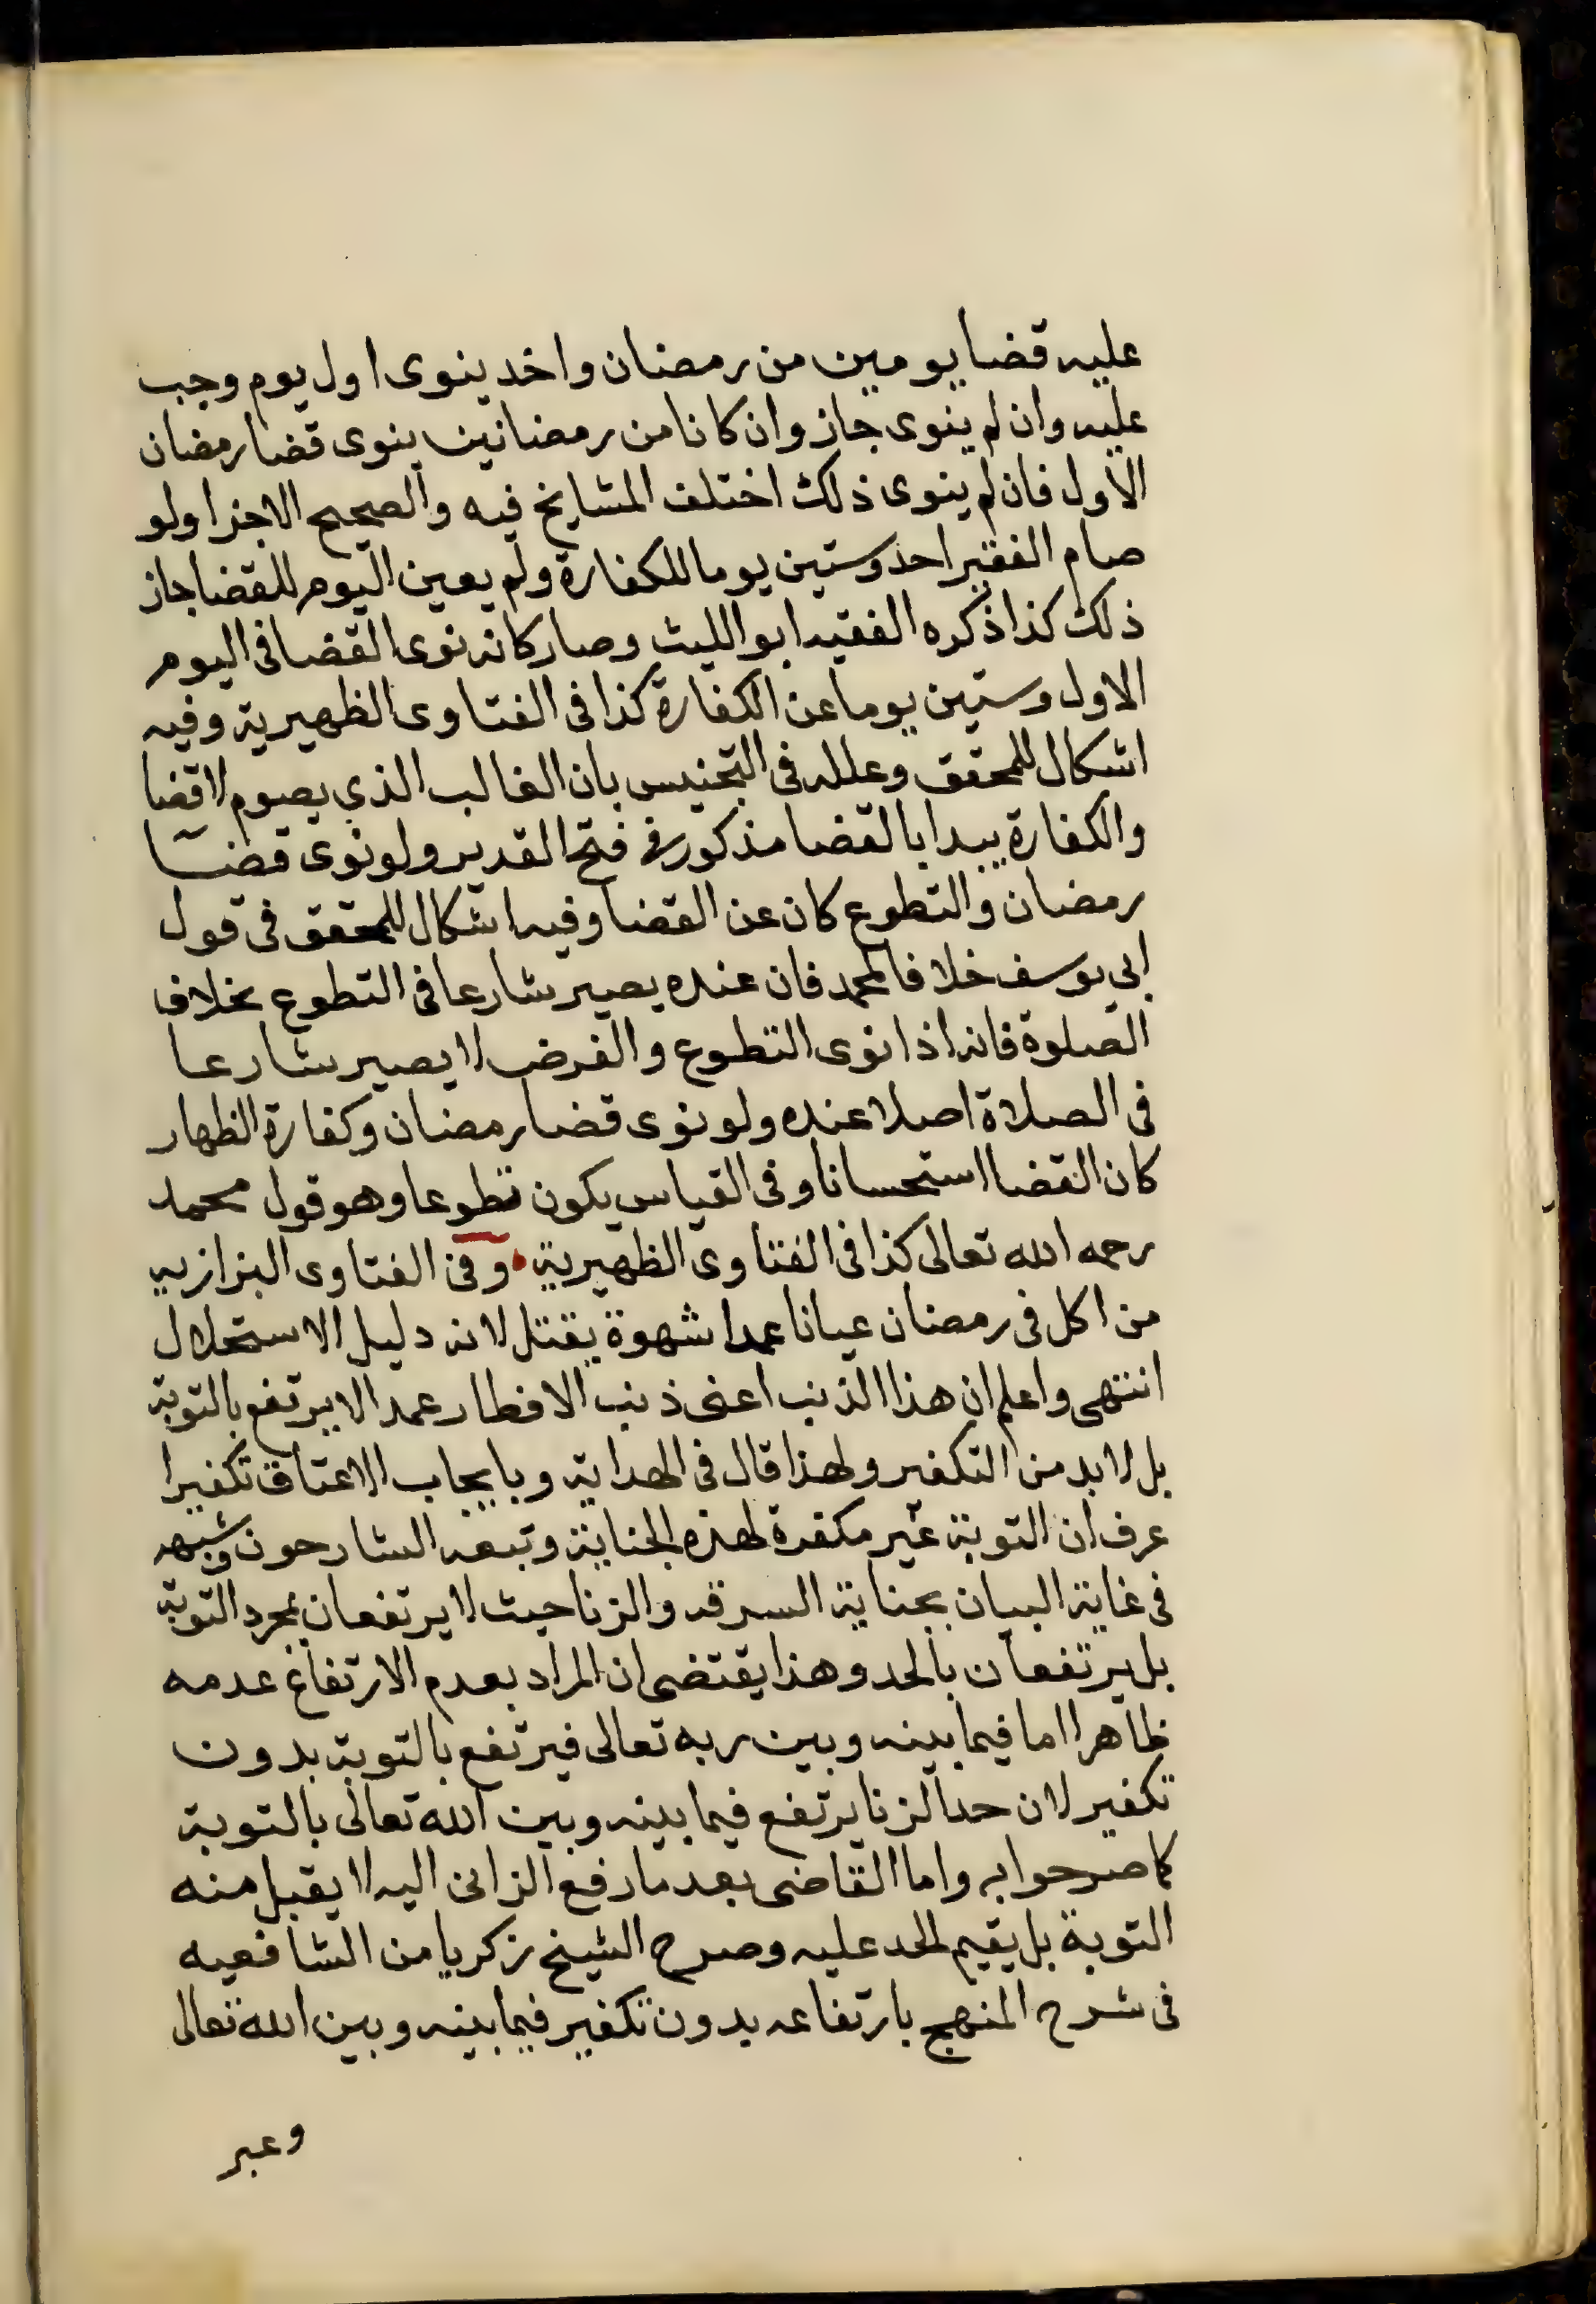 عليه قضا يومين من رمضان واخد ينوى اول يوم وجب
عليه وان لم ينوى جاز وان كانا من رمضانين ينوى قضا رمضان
الاول فان لم ينوى ذلك اختلف المشايخ فيه والصحيح الاجزا ولو
صام الفقير احد وستين يوما للكفارة ولم يعين اليوم للقضا جاز
ذلك كذا ذكره الفقيه ابو الليث وصار كانه نوى القضا فى اليوم
الاول وستين يوما عن الكفارة كذا فى الفتاوى الظهيرية وفيه
اشكال للمحقق وعلله فى التجنيس بان الغالب الذي يصوم لا قضا
والكفارة يبدا بالقضا مذكور فى فتح القدير ولو نوى قضا
رمضان والتطوع كان عن القضا وفيه اشكال للمحقق فى قول
ابي يوسف خلافا لمحمد فان عنده يصير شارعا فى التطوع بخلاف
الصلوة فانه اذا نوى التطوع والفرض لا يصير شارعا
فى الصلاة اصلا عنده ولو نوى قضا رمضان وكفارة الظهار
كان القضا استحسانا وفى القياس يكون تطوعا وهو قول محمد
رحمه الله تعالى كذا فى الفتاوى الظهيرية وفى الفتاوى البزازيه
من اكل فى رمضان عيانا عمدا شهوة يقتل لانه دليل الاستحلال
انتهى واعلم ان هذا الذنب اعنى ذنب الافطار عمدا لا يرتفع بالتوبة
بل لا بد من التكفير ولهذا قال فى الهداية وبايجاب الاعتاق تكفيرا
عرف ان التوبة غير مكفرة لهذه الجناية وتبعه الشارحون وشبهه
فى غاية البيان بجناية السرقه والزنا حيث لا يرتفعان بمجرد التوبة
بل يرتفعان بالحد وهذا يقتضى ان المراد بعدم الارتفاع عدمه
ظاهرا اما فيما بينه وبين ربه تعالى فيرتفع بالتوبة بدون
تكفير لان حد الزنا يرتفع فيما بينه وبين الله تعالى بالتوبة
كما صرحوا به واما القاضى بعد ما رفع الزانى اليه لا يقبل منه
التوبة بل يقيم الحد عليه وصرح الشيخ زكريا من الشافعيه
فى شرح المنهج بارتفاعه بدون تكفير فيما بينه وبين الله تعالى
وعبر